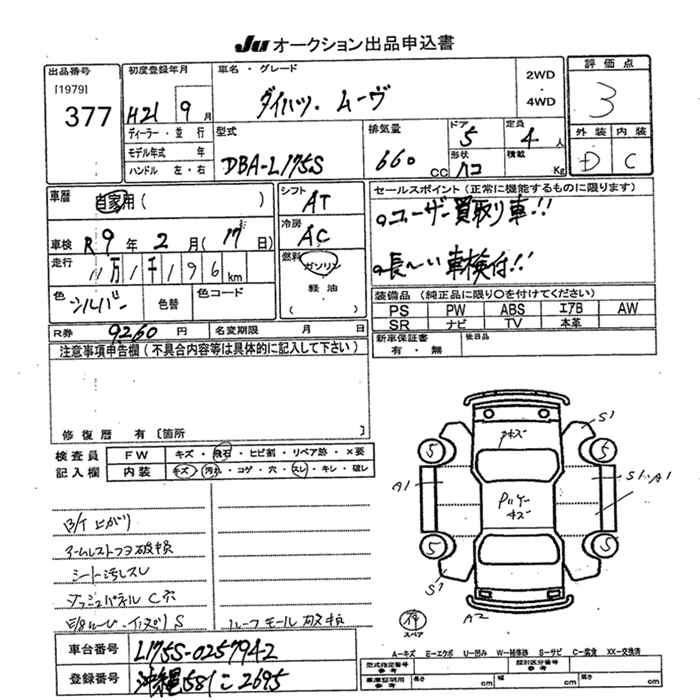 Ju オークション出品申込書
出品番号
[1979]
377
初度登録年月
H21 9月
ディーラー・並行
モデル年式 年
ハンドル 左・右
車名・グレード
ダイハツ・ムーヴ
2WD
・
4WD
型式
DBA-L175S
排気量
660 CC
ドア
5
形状
定員
4人
積載
Kg
評価点
3
外装 内装
D C
車歴
自家用( )
車検 R9年2月(17日)
走行
11万1千196km
色
シルバー
色替
色コード
R券 9260円
名変期限 月 日
シフト
AT
冷房
AC
燃料
ガソリン
軽油
( )
セールスポイント(正常に機能するものに限ります)
ユーザー買取り車!!
長〜い車検付!!
装備品 (純正品に限り〇を付けてください)
PS PW ABS エアB AW
SR ナビ TV 本革
新車保証書
有・無
後日品
注意事項申告欄(不具合内容等は具体的に記入して下さい)
修復歴 有 〔箇所
検査員
記入欄
FW キズ・飛石・ヒビ割・リペア跡・×要
内装 キズ・汚れ・コゲ・穴・スレ・キレ・破レ
シート汚レスレ
ダッシュパネルC穴
ルーフモール破損
車台番号 L175S-0257942
登録番号 沖縄581こ2695
S1
5
5
A1
S1・A1
5
5
S1
A2
スペア
A-キズ E-エクボ U-凹み W-補修跡 S-サビ C-腐食 XX-交換済
型式指定番号
参考
類別区分番号
参考
車庫証明用
参考
長さ cm 幅 cm 高さ cm